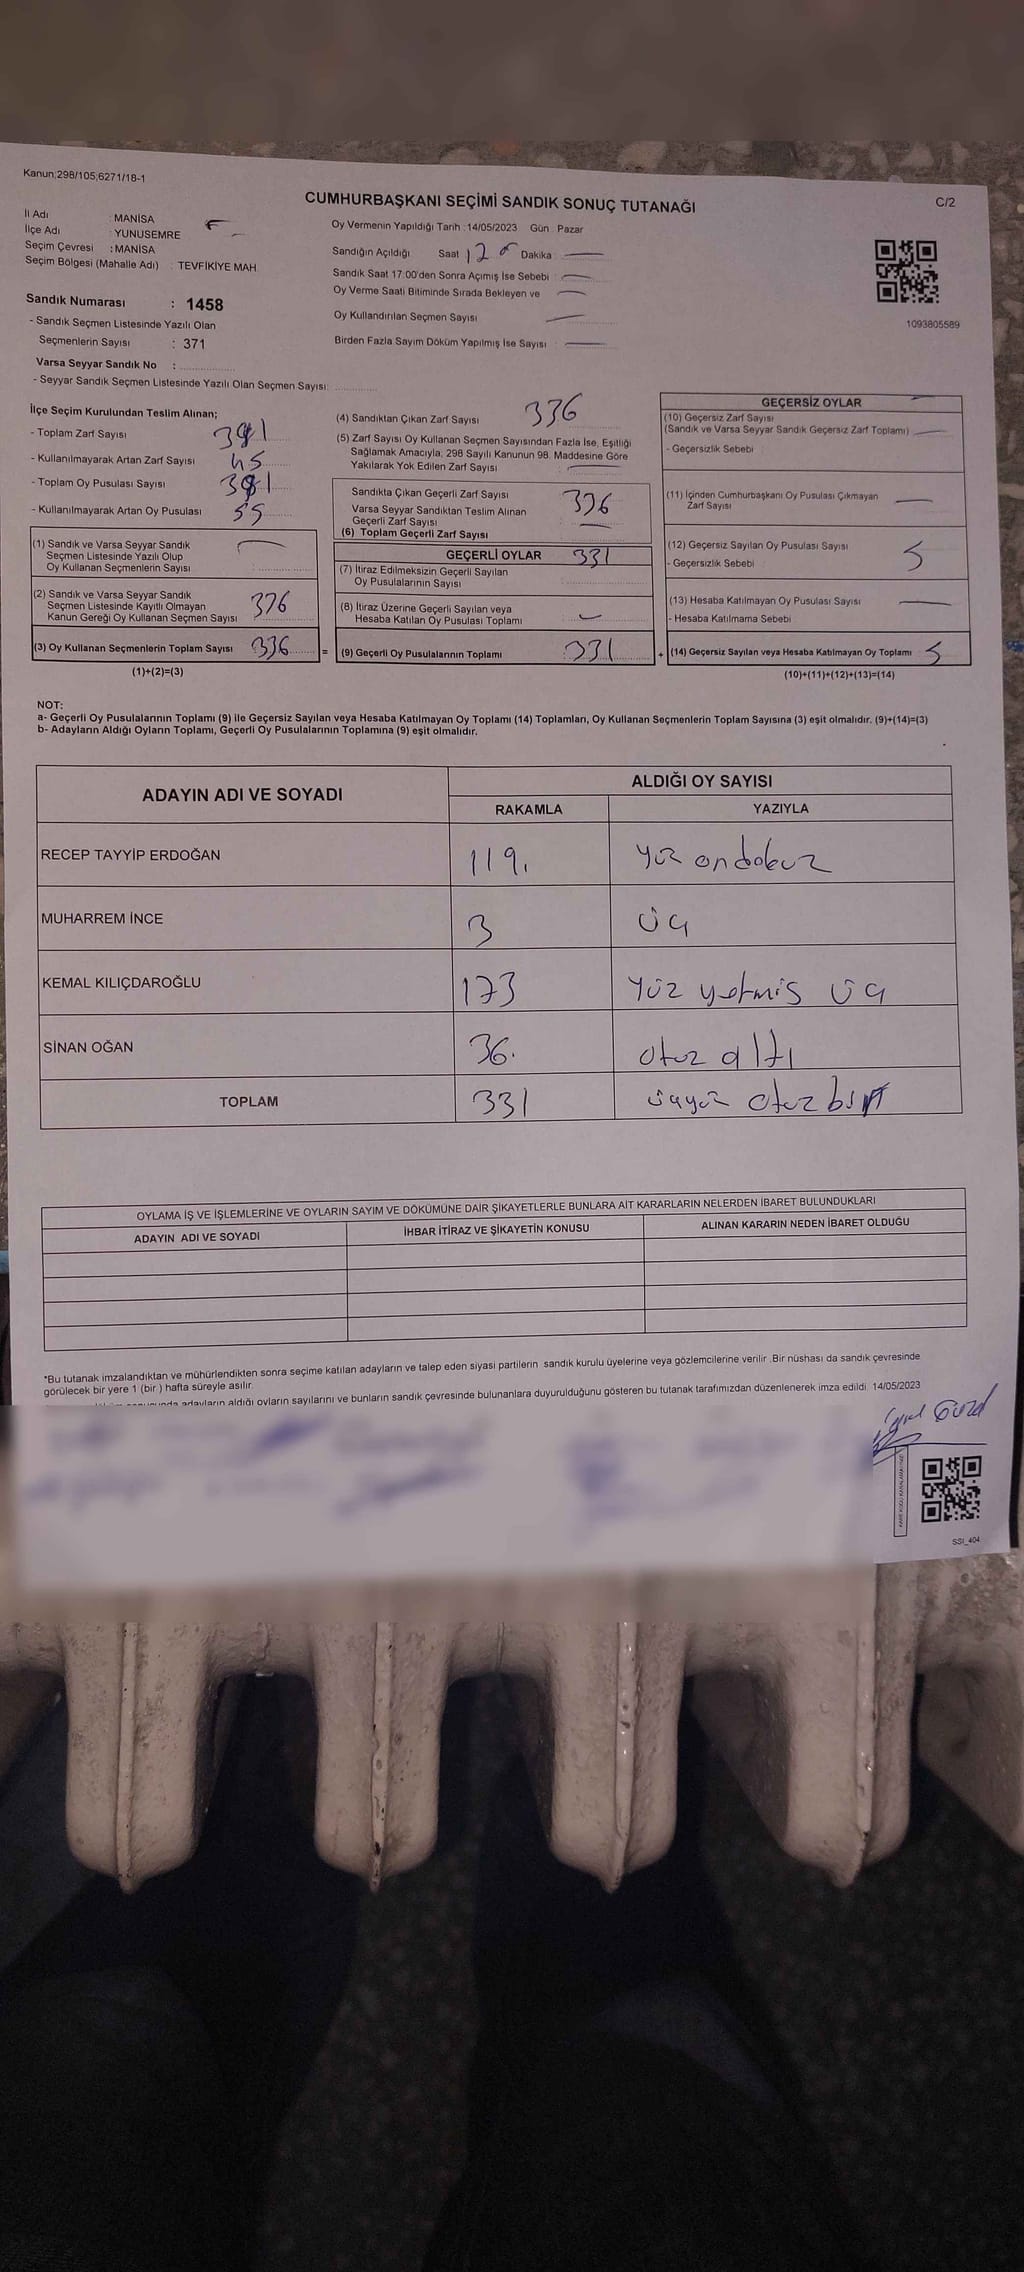 Kanun;298/105;6271/18-1
CUMHURBAŞKANI SEÇİMİ SANDIK SONUÇ TUTANAĞI
C/2
İl Adı : MANİSA
İlçe Adı : YUNUSEMRE
Seçim Çevresi : MANİSA
Seçim Bölgesi (Mahalle Adı) : TEVFİKİYE MAH.
Oy Vermenin Yapıldığı Tarih :14/05/2023 Gün : Pazar
Sandığın Açıldığı Saat Dakika :
Sandık Saat 17:00'den Sonra Açımış İse Sebebi :
Oy Verme Saati Bitiminde Sırada Bekleyen ve
Oy Kullandırılan Seçmen Sayısı
Birden Fazla Sayım Döküm Yapılmış İse Sayısı :
1093805589
Sandık Numarası : 1458
- Sandık Seçmen Listesinde Yazılı Olan
Seçmenlerin Sayısı : 371
Varsa Seyyar Sandık No :
- Seyyar Sandık Seçmen Listesinde Yazılı Olan Seçmen Sayısı:
İlçe Seçim Kurulundan Teslim Alınan;
- Toplam Zarf Sayısı
- Kullanılmayarak Artan Zarf Sayısı 45
- Toplam Oy Pusulası Sayısı
- Kullanılmayarak Artan Oy Pusulası 55
(1) Sandık ve Varsa Seyyar Sandık
Seçmen Listesinde Yazılı Olup
Oy Kullanan Seçmenlerin Sayısı
(2) Sandık ve Varsa Seyyar Sandık
Seçmen Listesinde Kayıtlı Olmayan
Kanun Gereği Oy Kullanan Seçmen Sayısı 336
(3) Oy Kullanan Seçmenlerin Toplam Sayısı 336 =
(1)+(2)=(3)
(4) Sandıktan Çıkan Zarf Sayısı 336
(5) Zarf Sayısı Oy Kullanan Seçmen Sayısından Fazla İse, Eşitliği
Sağlamak Amacıyla, 298 Sayılı Kanunun 98. Maddesine Göre
Yakılarak Yok Edilen Zarf Sayısı
Sandıkta Çıkan Geçerli Zarf Sayısı 336
Varsa Seyyar Sandıktan Teslim Alınan
Geçerli Zarf Sayısı
(6) Toplam Geçerli Zarf Sayısı
GEÇERLİ OYLAR 331
(7) İtiraz Edilmeksizin Geçerli Sayılan
Oy Pusulalarının Sayısı
(8) İtiraz Üzerine Geçerli Sayılan veya
Hesaba Katılan Oy Pusulası Toplamı
(9) Geçerli Oy Pusulalarının Toplamı 331 +
GEÇERSİZ OYLAR
(10) Geçersiz Zarf Sayısı
(Sandık ve Varsa Seyyar Sandık Geçersiz Zarf Toplamı)
- Geçersizlik Sebebi
(11) İçinden Cumhurbaşkanı Oy Pusulası Çıkmayan
Zarf Sayısı
(12) Geçersiz Sayılan Oy Pusulası Sayısı 5
- Geçersizlik Sebebi :
(13) Hesaba Katılmayan Oy Pusulası Sayısı
- Hesaba Katılmama Sebebi
(14) Geçersiz Sayılan veya Hesaba Katılmayan Oy Toplamı 5
(10)+(11)+(12)+(13)=(14)
NOT:
a- Geçerli Oy Pusulalarının Toplamı (9) ile Geçersiz Sayılan veya Hesaba Katılmayan Oy Toplamı (14) Toplamları, Oy Kullanan Seçmenlerin Toplam Sayısına (3) eşit olmalıdır. (9)+(14)=(3)
b- Adayların Aldığı Oyların Toplamı, Geçerli Oy Pusulalarının Toplamına (9) eşit olmalıdır.
ADAYIN ADI VE SOYADI ALDIĞI OY SAYISI
RAKAMLA YAZIYLA
RECEP TAYYİP ERDOĞAN 119. yüz ondokuz
MUHARREM İNCE 3 üç
KEMAL KILIÇDAROĞLU 173 yüz yetmis üç
SİNAN OĞAN 36. otuz altı
TOPLAM 331 üçyüz otuz bir
OYLAMA İŞ VE İŞLEMLERİNE VE OYLARIN SAYIM VE DÖKÜMÜNE DAİR ŞİKAYETLERLE BUNLARA AİT KARARLARIN NELERDEN İBARET BULUNDUKLARI
ADAYIN ADI VE SOYADI İHBAR İTİRAZ VE ŞİKAYETİN KONUSU ALINAN KARARIN NEDEN İBARET OLDUĞU
*Bu tutanak imzalandıktan ve mühürlendikten sonra seçime katılan adayların ve talep eden siyasi partilerin sandık kurulu üyelerine veya gözlemcilerine verilir. Bir nüshası da sandık çevresinde
görülecek bir yere 1 (bir ) hafta süreyle asılır.
adayların aldığı oyların sayılarını ve bunların sandık çevresinde bulunanlara duyurulduğunu gösteren bu tutanak tarafımızdan düzenlenerek imza edildi. 14/05/2023
SSI_404